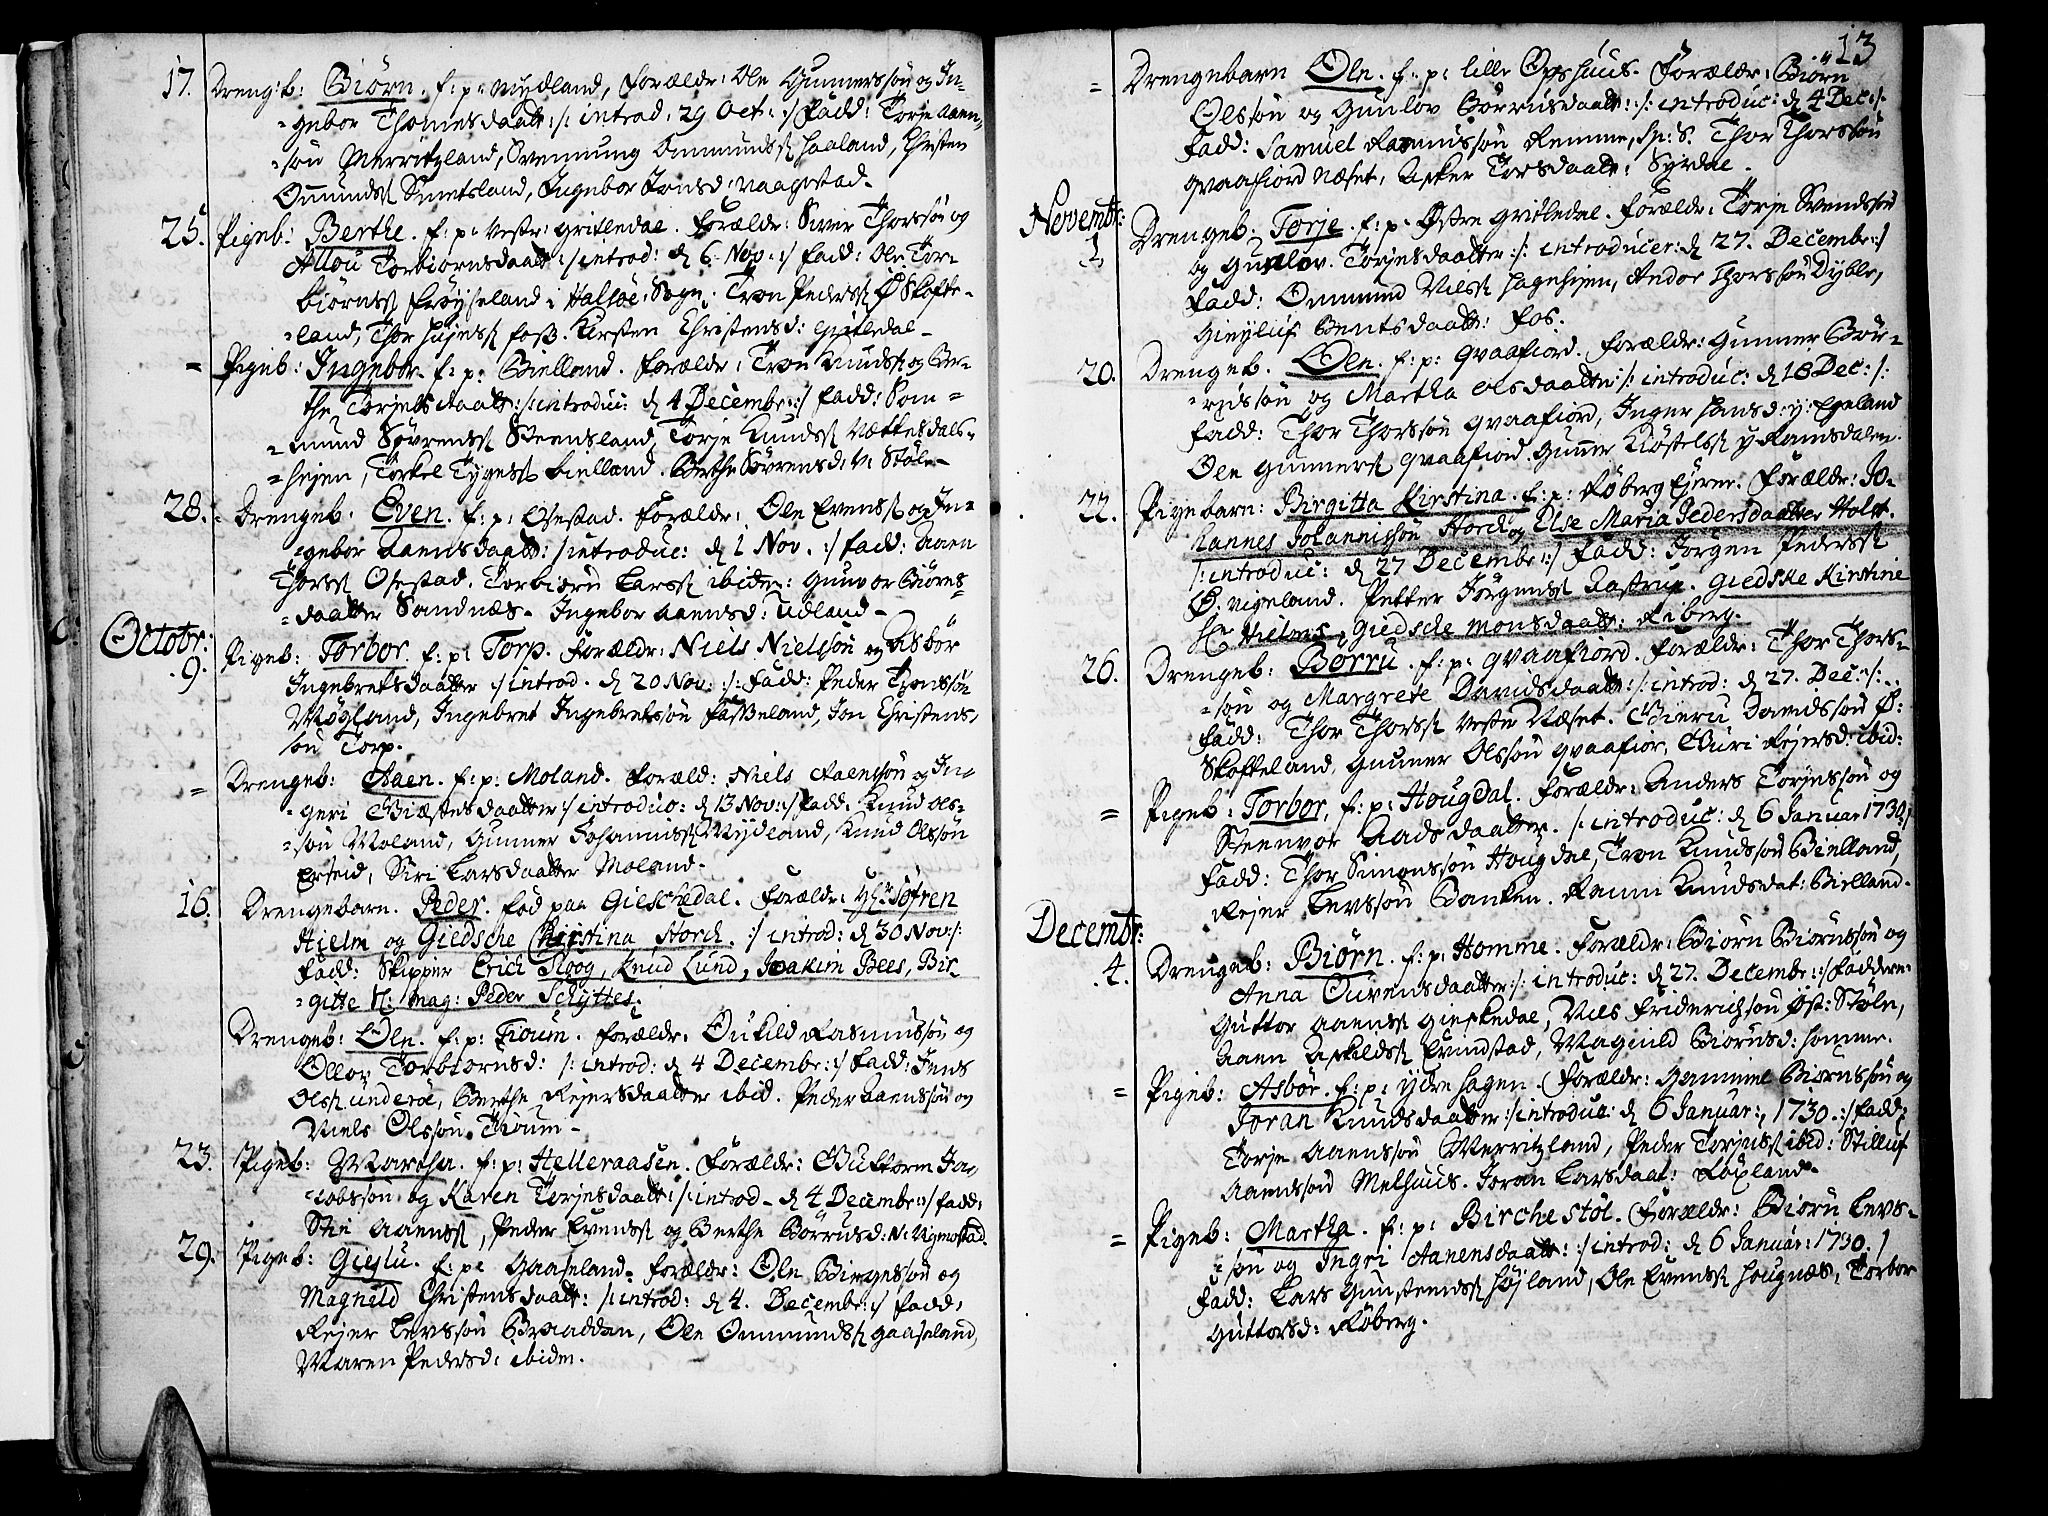 17. Dreng:b: Biørn. f: p: Mydland, Forældr: Ole Gunnerssøn og In-
-gebor Thomesdaatt: /: introd: 29 Oct: :/ Fadd: Torje Aaen-
-søn Merritzland, Svennung Ommunds. Haaland, Christen
Ommunds. Smetsland, Ingebor Jonsd: Vaagestad.
25. Pigeb: Berthe. f: p: Vestr: Gritledal. Forældr: Siver Thorssøn og
Allou Torbiørnsdaatt: /: introd: d 6. Nov: :/ Fadd: Ole Tor-
biørns. Frøysseland i Halsøe Sogn: Tron Peders. Ø Skofte-
-land, Thor foss. Kirsten Christensd: Gritledal-
= Pigeb: Ingebor. f: p: Bielland. Forældr: Tron Knuds. og Ber-
the Torjesdaatt: /: introduc: d 4 Decembr: :/ Fadd: Som-
-mund Sørens. Steensland, Torje Knuds. Nættesdals-
-hejen, Torkel Tyges. Bielland. Berthe Sørensd: V: Støle-
28. Drengeb: Even. f: p: Osestad. Forældr: Ole Evens. og In-
-gebor Aaensdaatt: /: introduc: d 1 Nov. :/ Fadd: Aaen
Thors. Osestad. Torbiørn Lars. ibidem: Gunvor Biørns-
-daatter Sandnæs- Ingebor Aaensd: Udland-
Octobr:
9. Pigeb: Torbor. f: p: Torp. Forældr: Niels Nielssøn og Asbør
Ingebretsdaatter :/ introd. d 20 Nov: :/: Fadd: Peder Tronssøn
Møgland, Ingebret Ingebretssøn Fasseland, Jon Christens-
søn Torp.
= Drengeb: Aaen. f: p: Moland. Foræld: Niels Aaenssøn og In-
-geri Giæstesdaatter :/ introduc: d 13 Nov: :/ Fadd: Knud Ols-
-søn Moland, Gunner Johannis. Mydland, Knud Olssøn
Erteid, Siri Larsdaatter Moland-
16. Drengebarn. Peder. fød paa Gieschedal. Forældr: Hr: Søfren
Hielm og Giedsche Christina Storch. :/ introd: d 30 Nov: /:
Fadd: Skipper Erich Ploog, Knud Lund, Joakim Bees, Bir-
-gitte Sl: Mag: Peder Schyttes.
Drengeb: Ole. f: p: Tioum. Forældr: Oukild Rasmussøn og
Ollou Torbiørnsd: /: introd: d 4 Decembr: :/ Fadd: Jens
Ols. Underøe, Berthe Rejersdaatter ibid. Peder Aaenssøn og
Niels Olssøn. Tioum-
23. Pigeb: Martha. f: p: Helleraasen. Forældr: Guttorm Ja-
-cobssøn og Karen Torjesdaatt: /: introd- d 4 Decembr: :/ Fadd:
Aaens., Peder Evens. og Berthe Børrusd: N: Vigmostad.
29. Pigeb: Gieslu. f: p: Gaaseland. Forældr: Ole Birgessøn og
Magnild Christensdaatt: /: introd: d 4. Decembr: :/ Fadd:
Rejer Levssøn Braaddan, Ole Ommunds. Gaaseland,
Maren Pedersd: ibidem.
13
= Drengebarn Ole. f: p: lille Opshuus. Forældr: Biørn
Olssøn og Gunlov Børrusdaatt: /: introduc: d 4 Dec: /:
Fadd: Samuel Rasmussøn Remme, Sp: S. Thor Thorssøn
Qvaafiord Næset, Asker Torsdaatt: Syrdal.
Novembr:
1. Drengeb: Torje. f: p: Østre Gritledal. Forældr: Torje Svendssøn
og Gunlov. Torjesdaatter: /: introducer: d 27. Decembr: /
Fadd: Ommund Niels. Hagehejen, Andor Thorssøn Dyblr,
Gieyluf Bentsdaatt: Fos:
20. Drengeb. Ole. f: p: Qvaafiord. Forældr: Gunner Bør-
-russøn og Martha Olsdaatter: /: introduc: d 18 Dec: /:
Fadd: Thor Thorssøn Qvaafiord, Inger Hansd: y: Egeland
Ole Gunners. Qvaafiord. Gunner Kiøstels. y Ramsdalen.
22. Pigebarn: Birgitta Kirstina. f: p: Røberg Ejeren. Forældr: Jo-
hannes Johannissøn Storch og Else Maria Pedersdaatter Holst.
/: introduc: d 27 Decembr: :/ Fadd: Jørgen Peders.
Ø. Vigeland. Petter Jørgens. Aastrup. Giedske Kirstine
Hr. Hielms, Giedsche Monsdaatt: Riberg.
26. Drengeb: Børru. f: p: Qvaafiord. Forældr: Thor Thors-
-søn og Margrete Davidsdaatt: /: introd: d 27. Dec: /:
Fadd: Thor Thors. Vestre Næset. Bieru Davidssøn Ø:
Skofteland, Gunner Olssøn Qvaafior, Guri Rejersd: ibid:
= Pigeb: Torbor. f: p: Hougdal. Forældr: Anders Torjussøn og
Steenvor Aadsdaatter. /: introduc: d 6 Januar 1730: /
Fadd: Thor Simonssøn Hougdal, Tron Knudssøn Bielland,
Rejer Levssøn Banken. Rauni Knudsdat: Bielland.
Decembr:
4. Drengeb: Biørn. f: p: Homme. Forældr: Biørn Biørnssøn og
Anna Ouvensdaatter: /: introduc: d 27. Decembr: :/ Faddere:
Guttor Aaens. Gieskedal, Niels Friderichsøn Øst: Støle,
Aaen Askilds. Evindstad, Magnild Biørnsd: Homme.
= Pigeb: Asbør. f: p: ydre Hagen. Forældr: Gammel Biørnssøn og
Joran Knudsdaatter :/ introduc: d 6 Januar:, 1730. :/ Fadd:
Torje Aaenssøn Merritzland, Peder Torjus. ibid: Stilluf
Aaenssøn Melhuus. Joran Larsdaat: Roxland-
= Pigeb: Martha. f: p: Birchestøl. Forældr: Biørn Levs-
-søn og Ingri Aanensdaatt: :/ introd: d 6 Januar: 1730. /
Fadd: Lars Gunstens. Højland, Ole Evens. Hougnæs, Torbor
Guttorsd: Røberg.